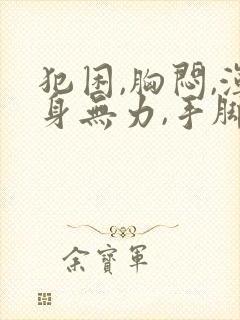 犯困,胸悶,
身無力,手腳
余寳軍